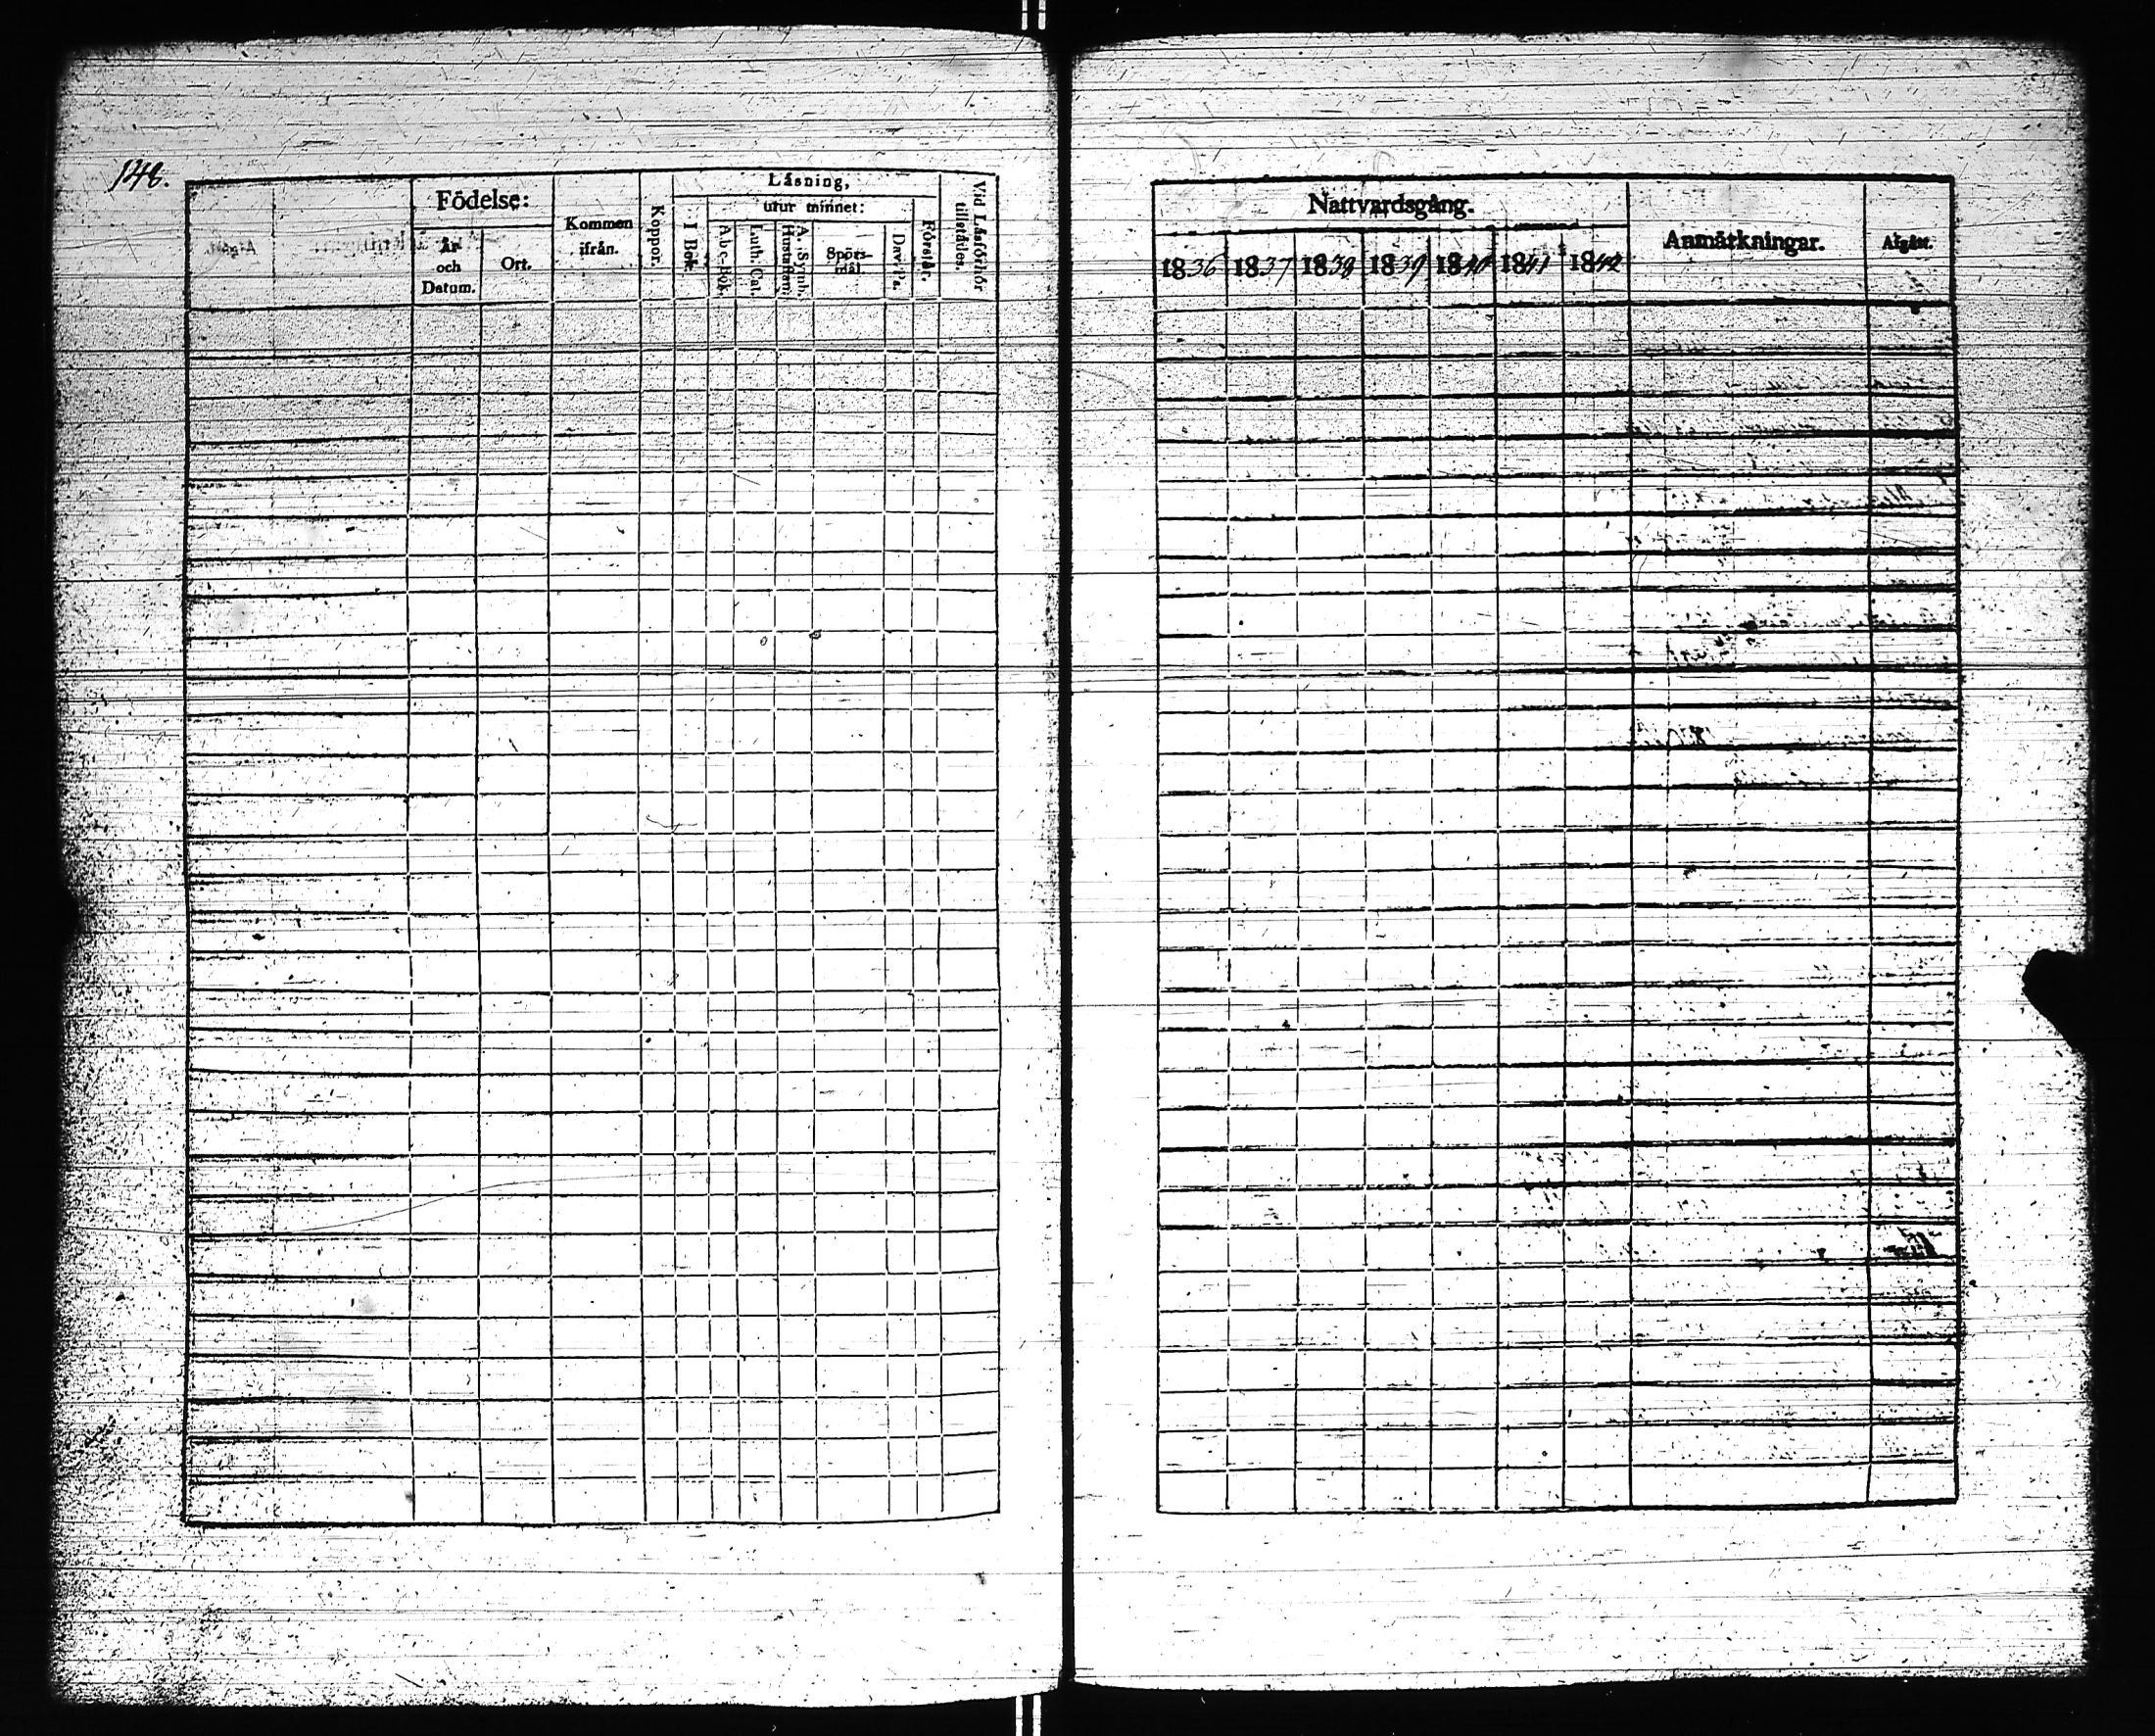 148.
Födelse:
År och Datum.
Ort.
Kommen ifrån.
Koppor.
Läsning,
I Bok.
utur minnet:
A.b.c-Bok.
Luth. Cat.
A. Symb. Hustaflan.
Spörs-mål.
Dav. Ps.
Förestår.
Vid Läsförhör tillstädes.
Nattvardsgång.
1836 1837 1838 1839 1840 1841 1842
Anmärkningar.
Afgått.